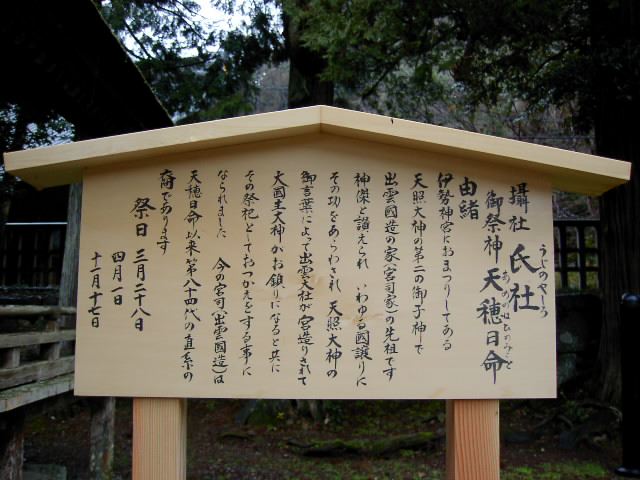 攝社 氏社
うじのやしろ
御祭神 天穂日命
あめのほひのみこと
由緒
伊勢神宮におまつりしてある
天照大神の第二の御子神で
出雲國造の家(宮司家)の先祖です
神傑と讃えられ いわゆる國譲りに
その功をあらわされ 天照大神の
御言葉によって出雲大社が宮造りされて
大国主大神がお鎮りになると共に
その祭祀としておつかえをする事に
なられました 今の宮司(出雲國造)は
天穂日命以来第八十四代の直系の
裔であります
祭日 三月二十八日
四月一日
十一月十七日